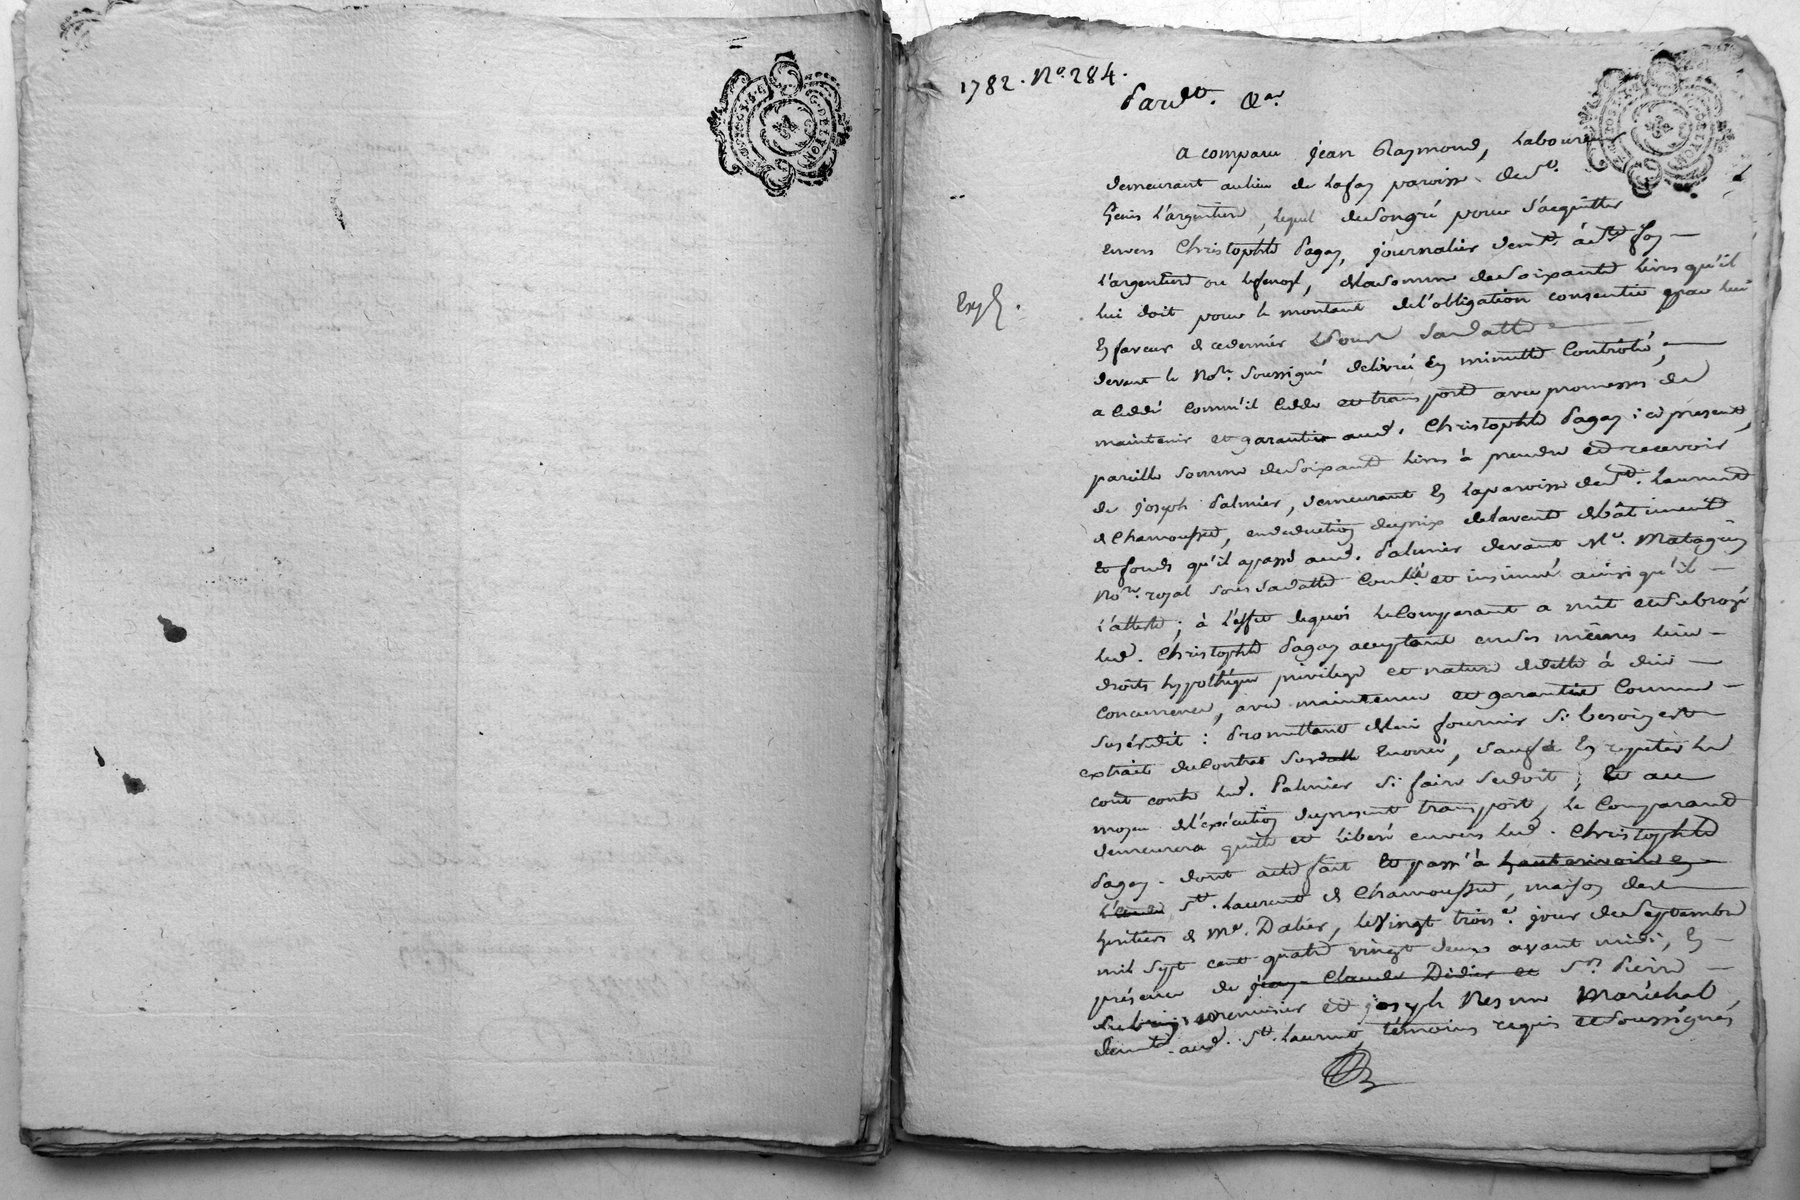 1782. No. 284.
Pardt. &ar
A comparu jean Raymond, Laboureur
demeurant au lieu de Lafay paroisse de St.
Genis l'argentiere, lequel de son gré pour s'acquitter
envers Christophle Pagay, journalier demt. à Ste foy
l'argentiere, de la somme de soixante livres qu'il
lui doit pour le montant de l'obligation consentie par lui
En faveur de ce dernier sa datte
devant le Nore. soussigné délivré En minutte Controllé,
a Cédé comm'il Cedde et transporte avec promesses de
maintenir et garantir aud. Christophle Pagay ici present,
pareille somme de soixante livres à prendre et recevoir
de joseph Palmier, demeurant En la paroisse de St. Laurent
de Chamousset, en deduction du prix de la vente de bâtiments
et fonds qu'il a passé aud. Palmier devant Me. Matagrin
Nore. royal sous sa datte Contlé. et insinué ainsi qu'il
l'atteste; à l'effet de quoi le Comparant a mit et subrogé
led. Christophle Pagay acceptant en ses mêmes lieu
droits hypothèque privilege et nature de dette à due
concurrence, avec maintenue et garantie Comme
sus est dit : Promettant de lui fournir si besoin est
extrait du Contrat enoncé, sauf à En repeter le
cout contre led. Palmier si faire se doit; Et au
moyen de l'exécution du present transport, le Comparant
demeurera quitte et libéré envers led. Christophle
Pagay. dont acte fait Et passé à hauterivoire en
l'étude St. Laurent de Chamousset, maison des
heritiers de Me. Dalier, le Vingt troise. jour de Septembre
mil Sept cent quatre vingt deux avant midi, En
présence de Claude Didier et Sr. Pierre
menuisier et joseph Marêchal,
demts. aud. St. Laurent, témoins requis et soussignés